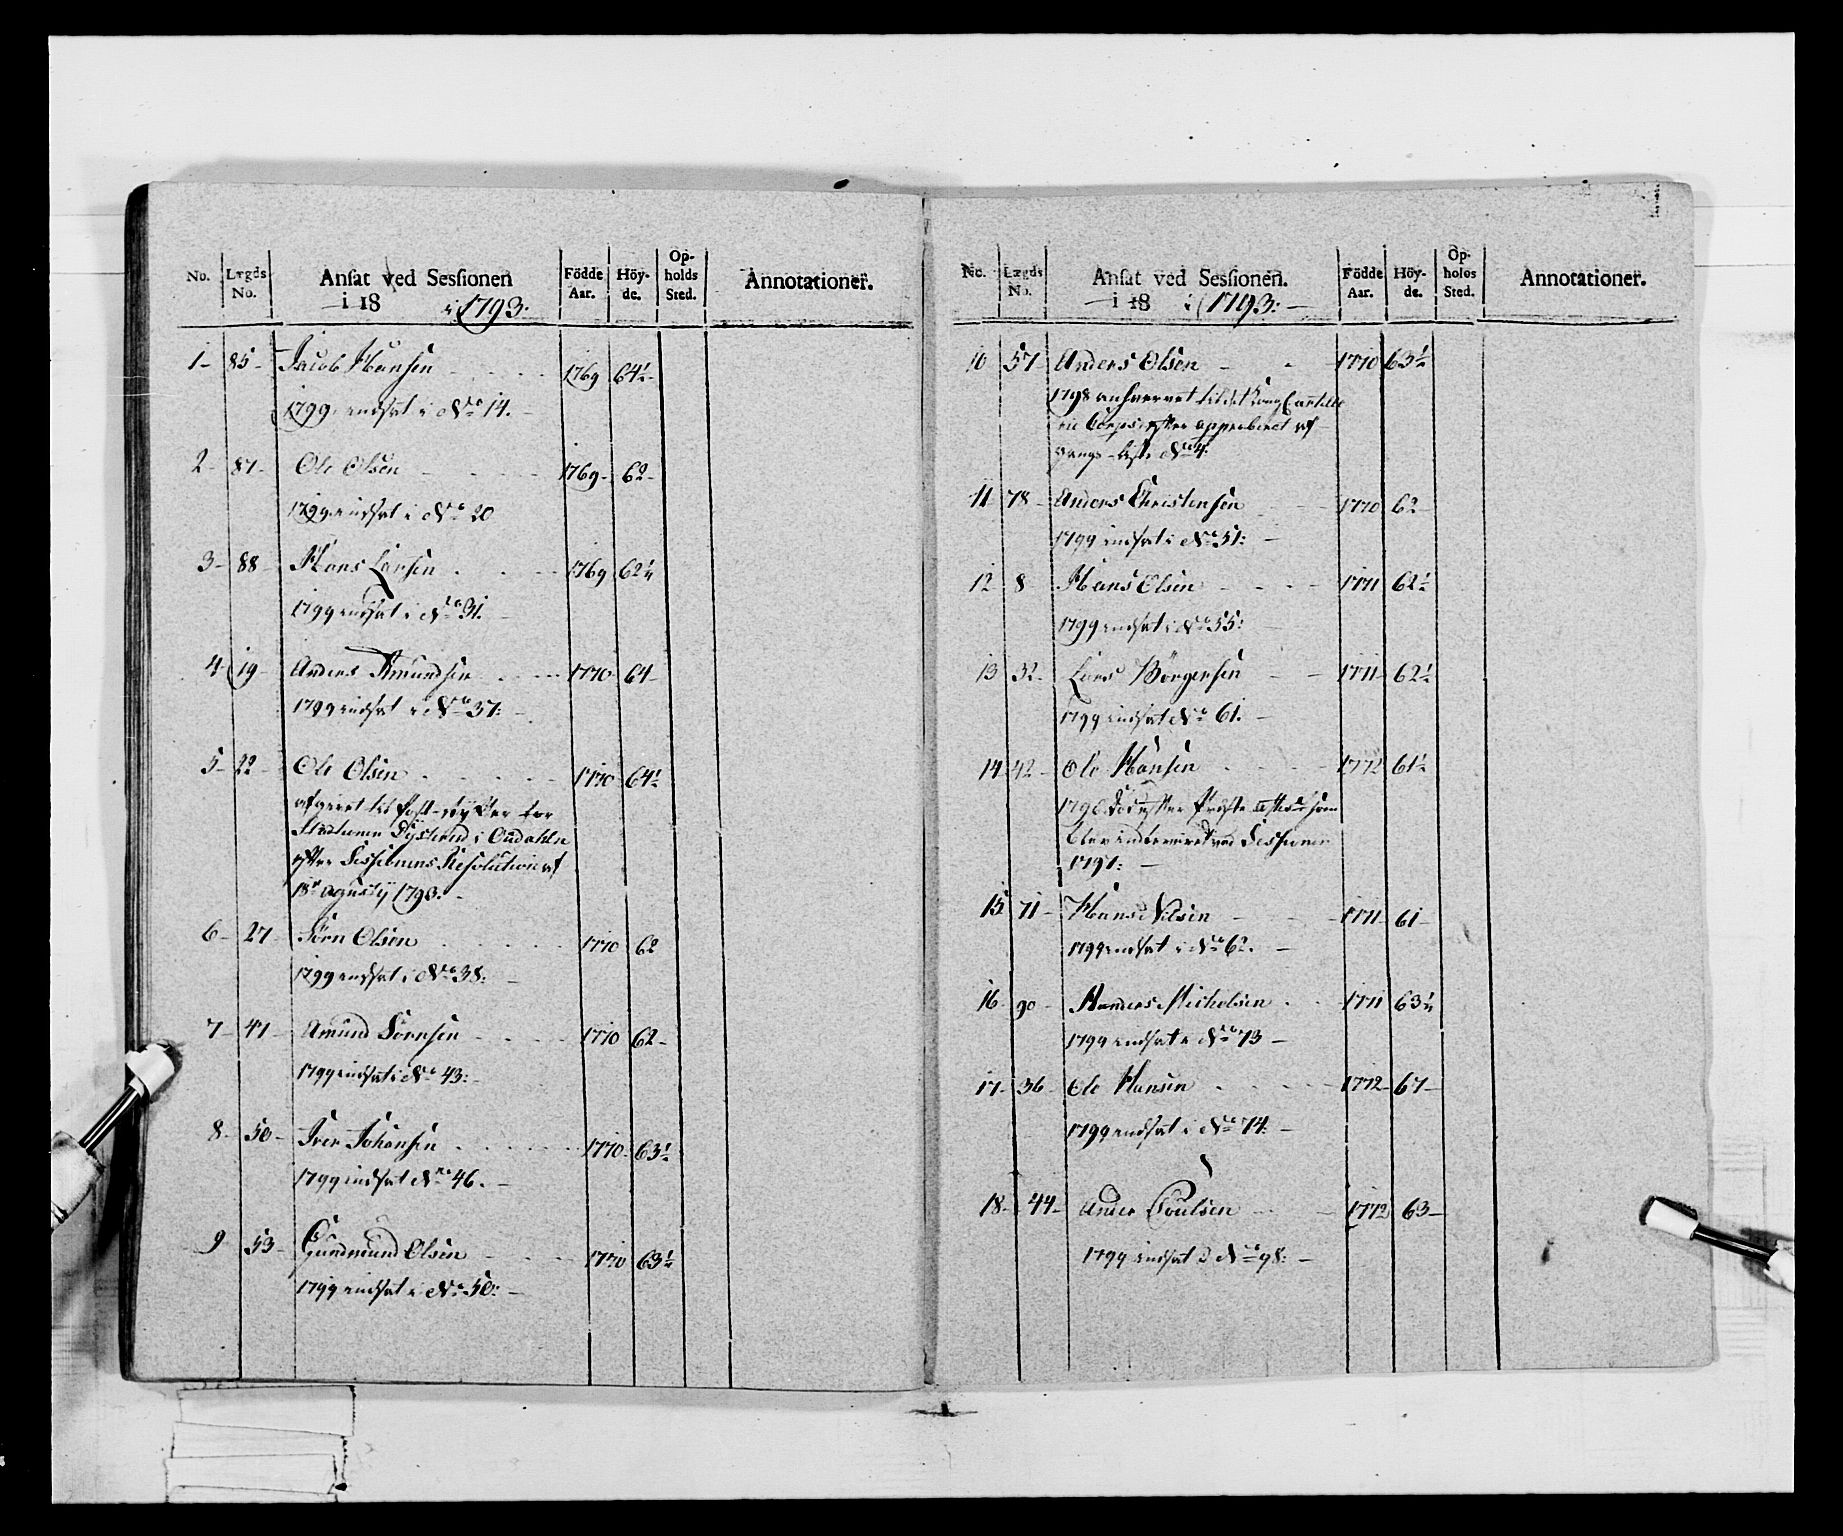 No. Lægds No. Ansat ved Sessionen i 18 i 1793. Födde Aar. Höy-de. Op-holds Sted. Annotationer.
1- 85- Jacob Hansen 1769 64½-
1799 indsat i No 14.
2- 87- Ole Olsen 1769- 62-
1799 indsat i No 20
3- 88- Hans Larsen 1769 62½
1799 indsat i No 31.
4- 19- Anders Amundsen 1770- 64-
1799 indsat i No 37:
5- 22- Ole Olsen 1770 64½
afgivet til Post-rytter for
Stationen Dystrud i Oudahln
efter Sessionens Resolution af
18d Agustij 1793.
6- 27- Sörn Olsen 1770 62
1799 indsat i No 38:
7- 47- Amund Sörnsen 1770 62-
1799 indsat i No 43:
8- 50- Iver Johansen 1770- 63½
1799 indsat No 46.
9 53- Gundmund Olsen 1770 63½
1799 indsat i No 50:
No. Lægds No. Ansat ved Sessionen. i 18 i 1793: Födde Aar. Höy-de. Op-holds Sted. Annotationer.
10 57 Anders Olsen 1770 63½
1798 anhvervet til det Kongl artille
rie Corps efter approberet af
gangs-liste No 4.
11 78- Anders Christensen 1770 62-
1799 indsat i No 51:
12 8 Hans Olsen 1771 62½
1799 indsat i No 55:
13 32- Lars Börgersen 1771 62½
1799 indsat No 61.
14 42- Ole Hansen 1772 61½
efter Præste som
blev ved Sessionen
1797:
15 71- Hans Nilsen 1771 61-
1799 indsat i No 62.
16- 90- Anders Michelsen 1771 63½
1799 indsat i No 73
17- 36- Ole Hansen 1772 67-
1799 indsat i No 74:
18- 44- Ander Poulsen 1772 63-
1799 indsat No 98: